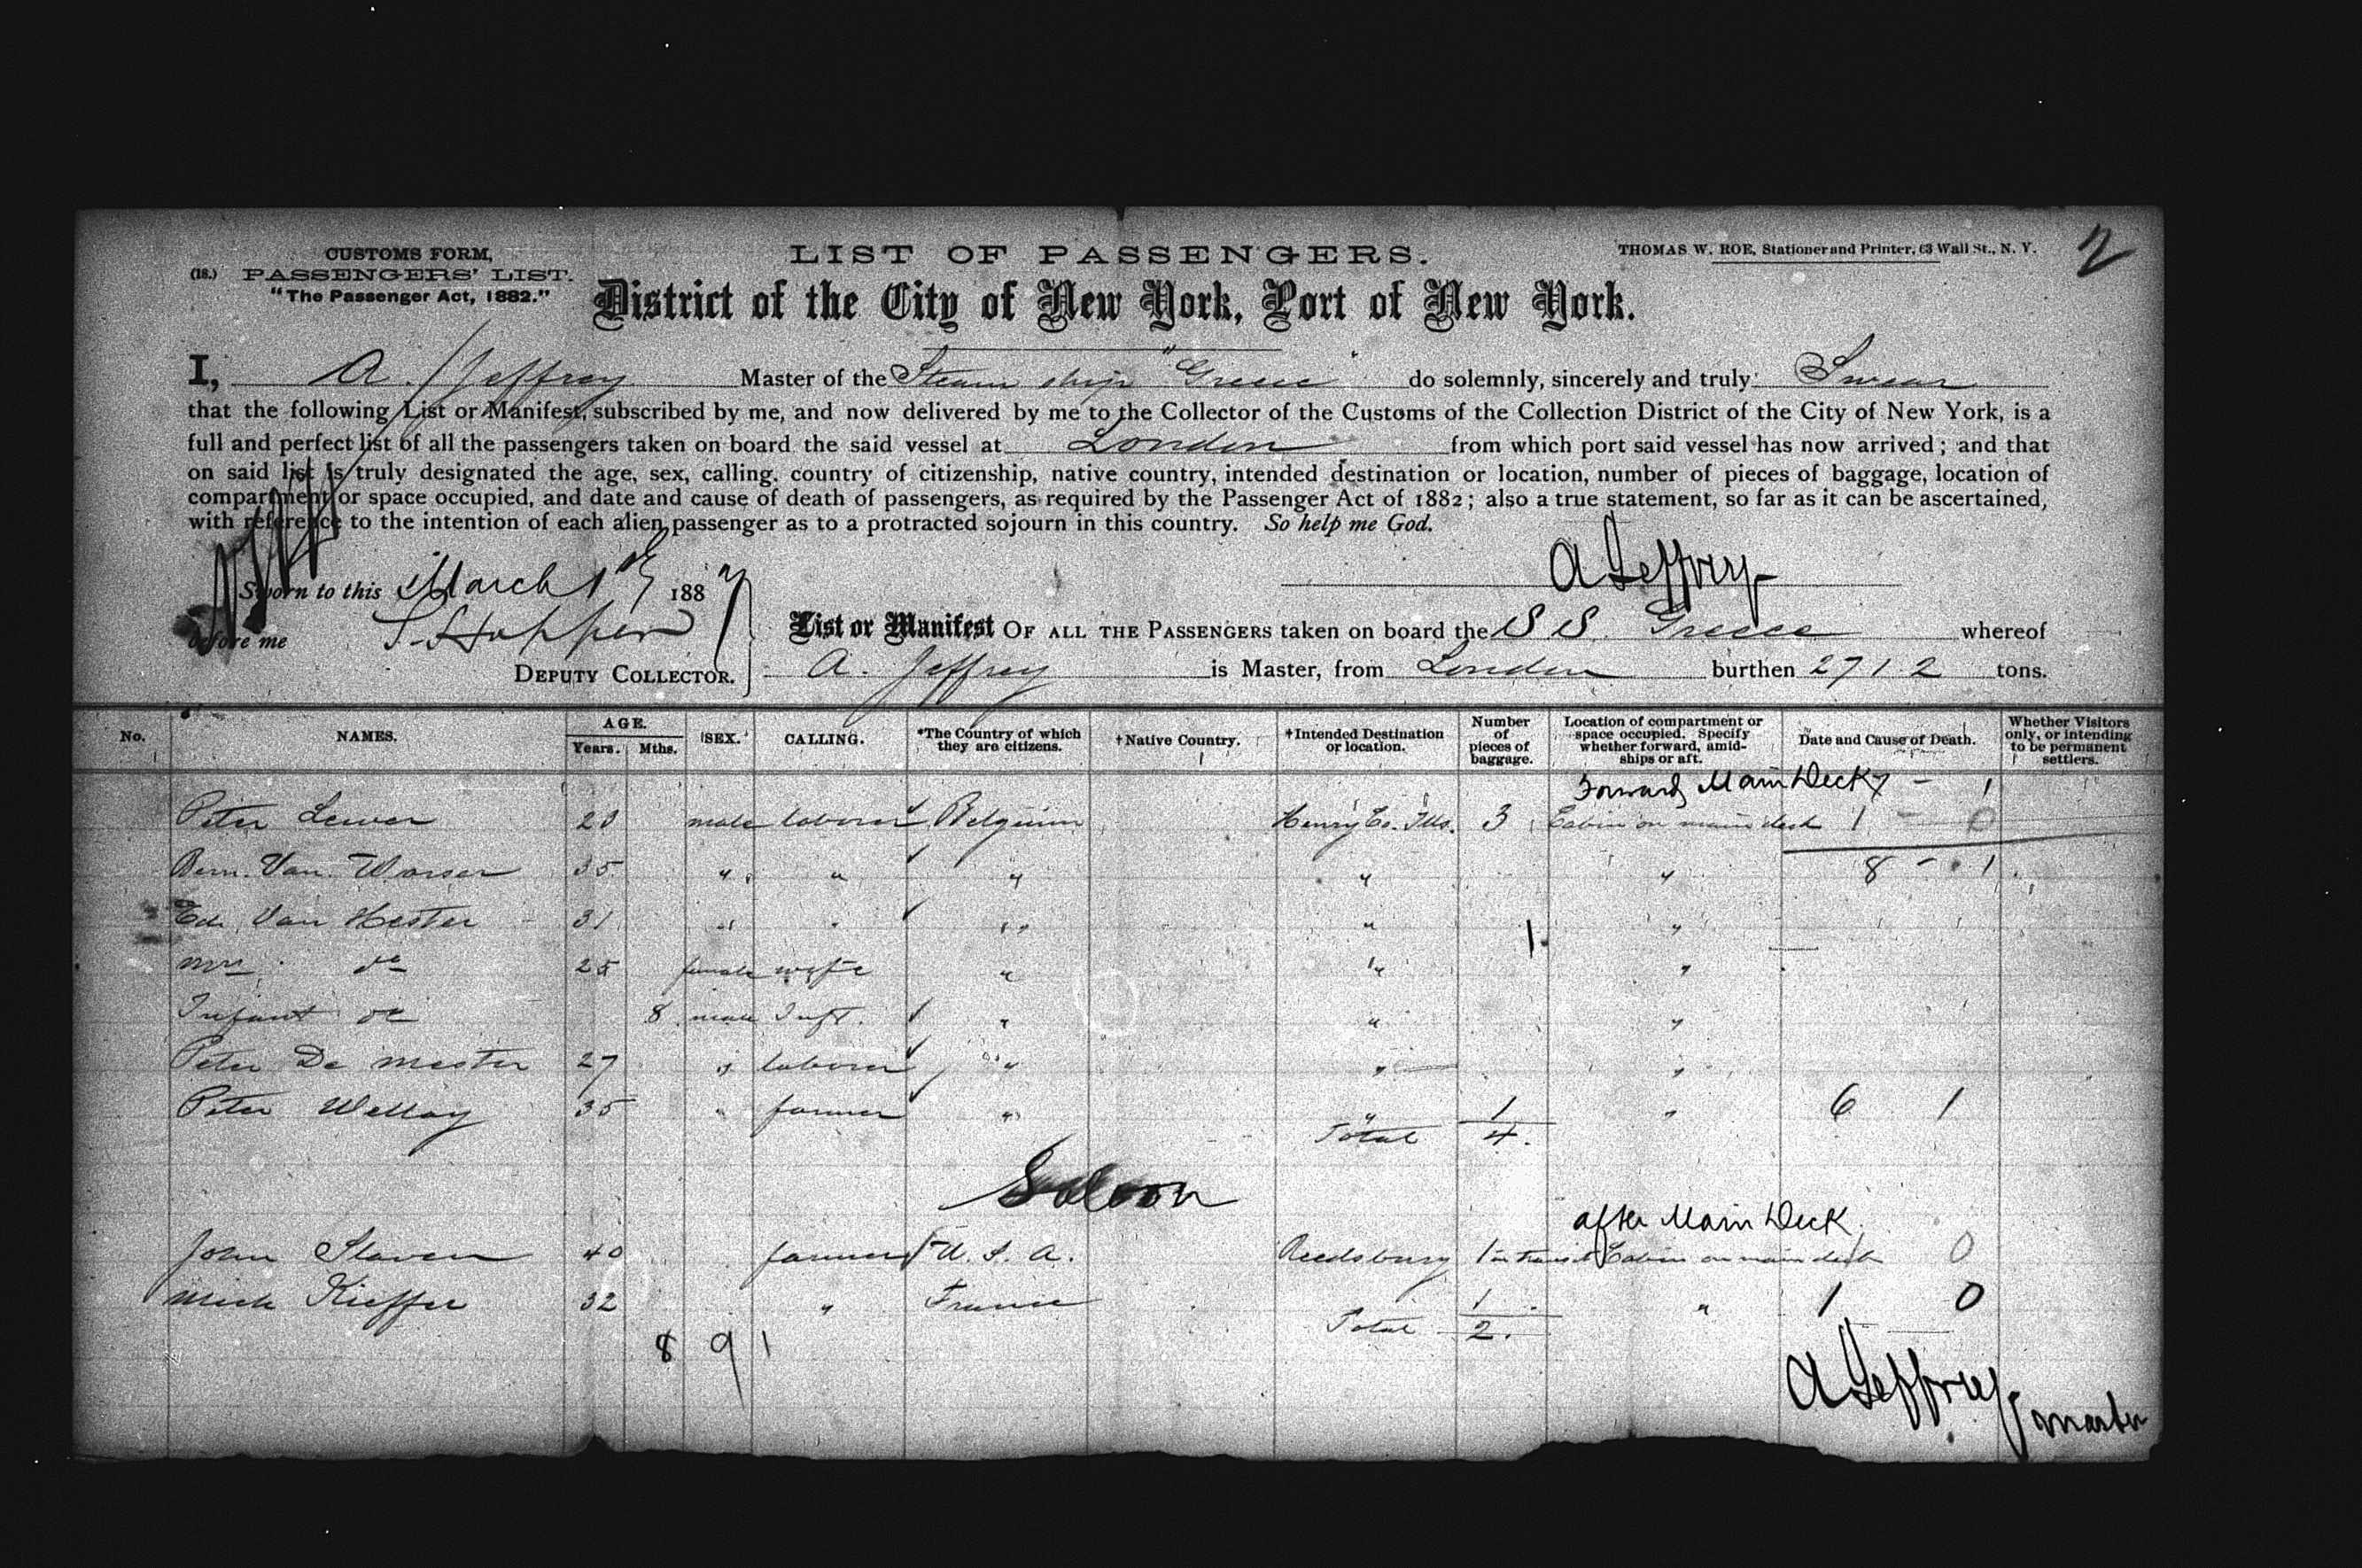 2
CUSTOMS FORM,
(18.) PASSENGERS' LIST.
"The Passenger Act, 1882."
LIST OF PASSENGERS.
THOMAS W. ROE, Stationer and Printer, 63 Wall St., N. Y.
District of the City of New York, Port of New York.
I, A. Jeffrey Master of the Steam ship "Greece" do solemnly, sincerely and truly Swear
that the following List or Manifest, subscribed by me, and now delivered by me to the Collector of the Customs of the Collection District of the City of New York, is a
full and perfect list of all the passengers taken on board the said vessel at London from which port said vessel has now arrived; and that
on said list is truly designated the age, sex, calling, country of citizenship, native country, intended destination or location, number of pieces of baggage, location of
compartment or space occupied, and date and cause of death of passengers, as required by the Passenger Act of 1882; also a true statement, so far as it can be ascertained,
with reference to the intention of each alien passenger as to a protracted sojourn in this country. So help me God.
A Jeffrey
Sworn to this March 188 7
before me
DEPUTY COLLECTOR.
List or Manifest OF ALL THE PASSENGERS taken on board the S S. Greece whereof
A. Jeffrey is Master, from London burthen 2712 tons.
No. NAMES. AGE. Years. Mths. SEX. CALLING. *The Country of which they are citizens. †Native Country. †Intended Destination or location. Number of pieces of baggage. Location of compartment or space occupied. Specify whether forward, amidships or aft. Date and Cause of Death. Whether Visitors only, or intending to be permanent settlers.
Forward Main Deck 7 - 1
Peter 23 male laborer Belgium Henry Co. Ills. 3 Cabin on main deck 1 - 0
Bern. Van 35 " " " " " 8 - 1
Van Hester 31 " " " " 1 "
Mrs do 25 female wife " " "
Infant do 8 male Inft. " " "
Peter De Mester 27 " laborer " " "
Peter 35 " farmer " " 1 " 6 1
Total 4.
Saloon
after Main Deck
John Slaven 40 farmer U. S. A. Reedsburg 1 in transit Cabin on main deck 0
Kieffer 32 " France 1 " 1 0
Total 2.
8 9 1
A Jeffrey
Master